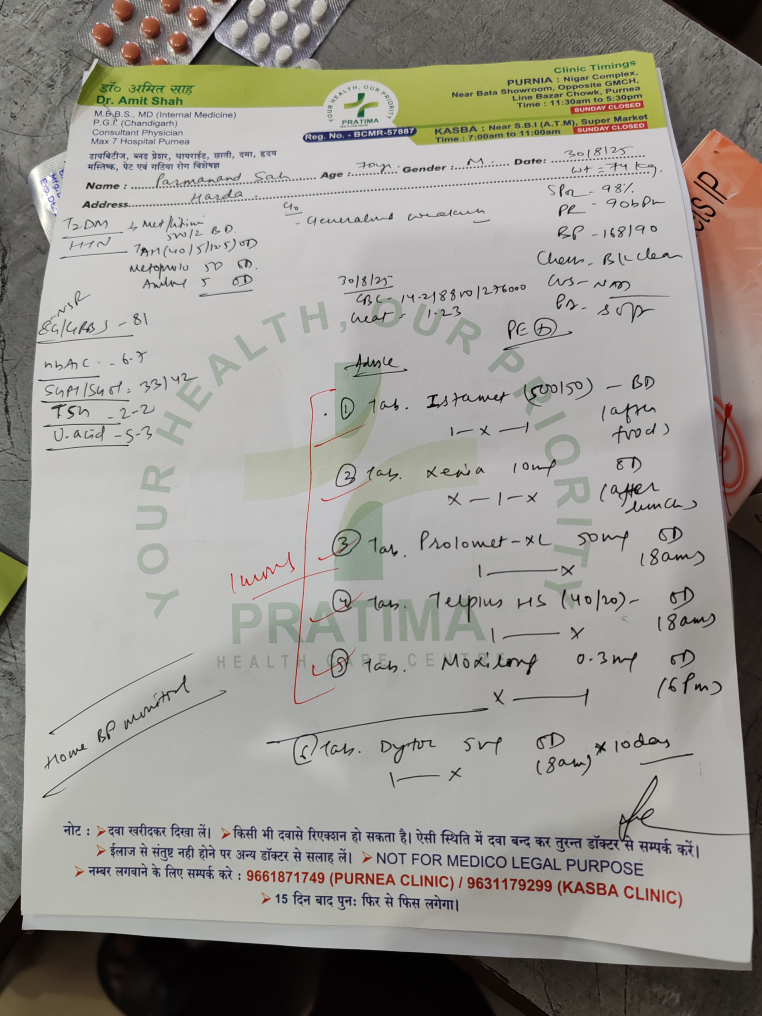 डॉ० अमित साह
Dr. Amit Shah
M.B.B.S., MD (Internal Medicine)
P.G.I. (Chandigarh)
Consultant Physician
Max 7 Hospital Purnea
डायबिटीज, ब्लड प्रेशर, थायराईड, छाती, दमा, हृदय
मस्तिष्क, पेट एवं गठिया रोग विशेषज्ञ
YOUR HEALTH, OUR PRIORITY
PRATIMA
Reg. No. - BCMR-57887
Clinic Timings
PURNIA : Nigar Complex,
Near Bata Showroom, Opposite GMCH,
Line Bazar Chowk, Purnea
Time : 11:30am to 5:30pm
SUNDAY CLOSED
KASBA : Near S.B.I (A.T.M), Super Market
Time : 7:00am to 11:00am SUNDAY CLOSED
Name : Parmanand Sah Age : 70y. Gender : M. Date: 30/8/25
Address Harda wt = 74 kg.
T2DM
500/2 BD.
HTN TAM (40/5/12.5) OD
50 OD.
5 OD
c/o
- Generalised weakness
SPO2 - 98%
PR - 90bpm
BP - 168/90
Chest - B/L clear
CVS - NAD
PE (+)
NSR
- 81
HbA1C - 6.7
SGPT/SGOT : 33/42
TSH - 2.2
U. acid - 5.3
30/8/25
CBC - 14.2/8800/276000
Creat - 1.23
Advice
1 Tab. Istamet (500/50) - BD
1 - x - 1 (after food)
2 Tab. Xenia 10mg OD
x - 1 - x (after lunch)
3 Tab. Prolomet-XL 50mg OD
1 — x (8am)
4 Tab. Telpius HS (40/20) - OD
1 — x (8am)
5 Tab. Moxilong 0.3mg OD
x — 1 (6pm)
6 Tab. Dytor 5mg OD x 10 days
1 — x (8am)
Home BP monitor
YOUR HEALTH, OUR PRIORITY
PRATIMA
HEALTH CARE CENTRE
नोट : ➤ दवा खरीदकर दिखा लें। ➤ किसी भी दवासे रिएक्शन हो सकता है। ऐसी स्थिति में दवा बन्द कर तुरन्त डॉक्टर से सम्पर्क करें।
➤ ईलाज से संतुष्ट नही होने पर अन्य डॉक्टर से सलाह लें। ➤ NOT FOR MEDICO LEGAL PURPOSE
➤ नम्बर लगवाने के लिए सम्पर्क करे : 9661871749 (PURNEA CLINIC) / 9631179299 (KASBA CLINIC)
➤ 15 दिन बाद पुन: फिर से फिस लगेगा।